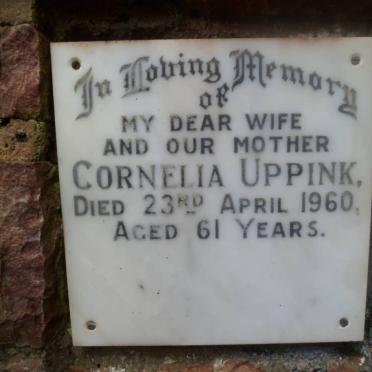 In Loving Memory
of
MY DEAR WIFE
AND OUR MOTHER
CORNELIA UPPINK,
DIED 23RD APRIL 1960,
AGED 61 YEARS.